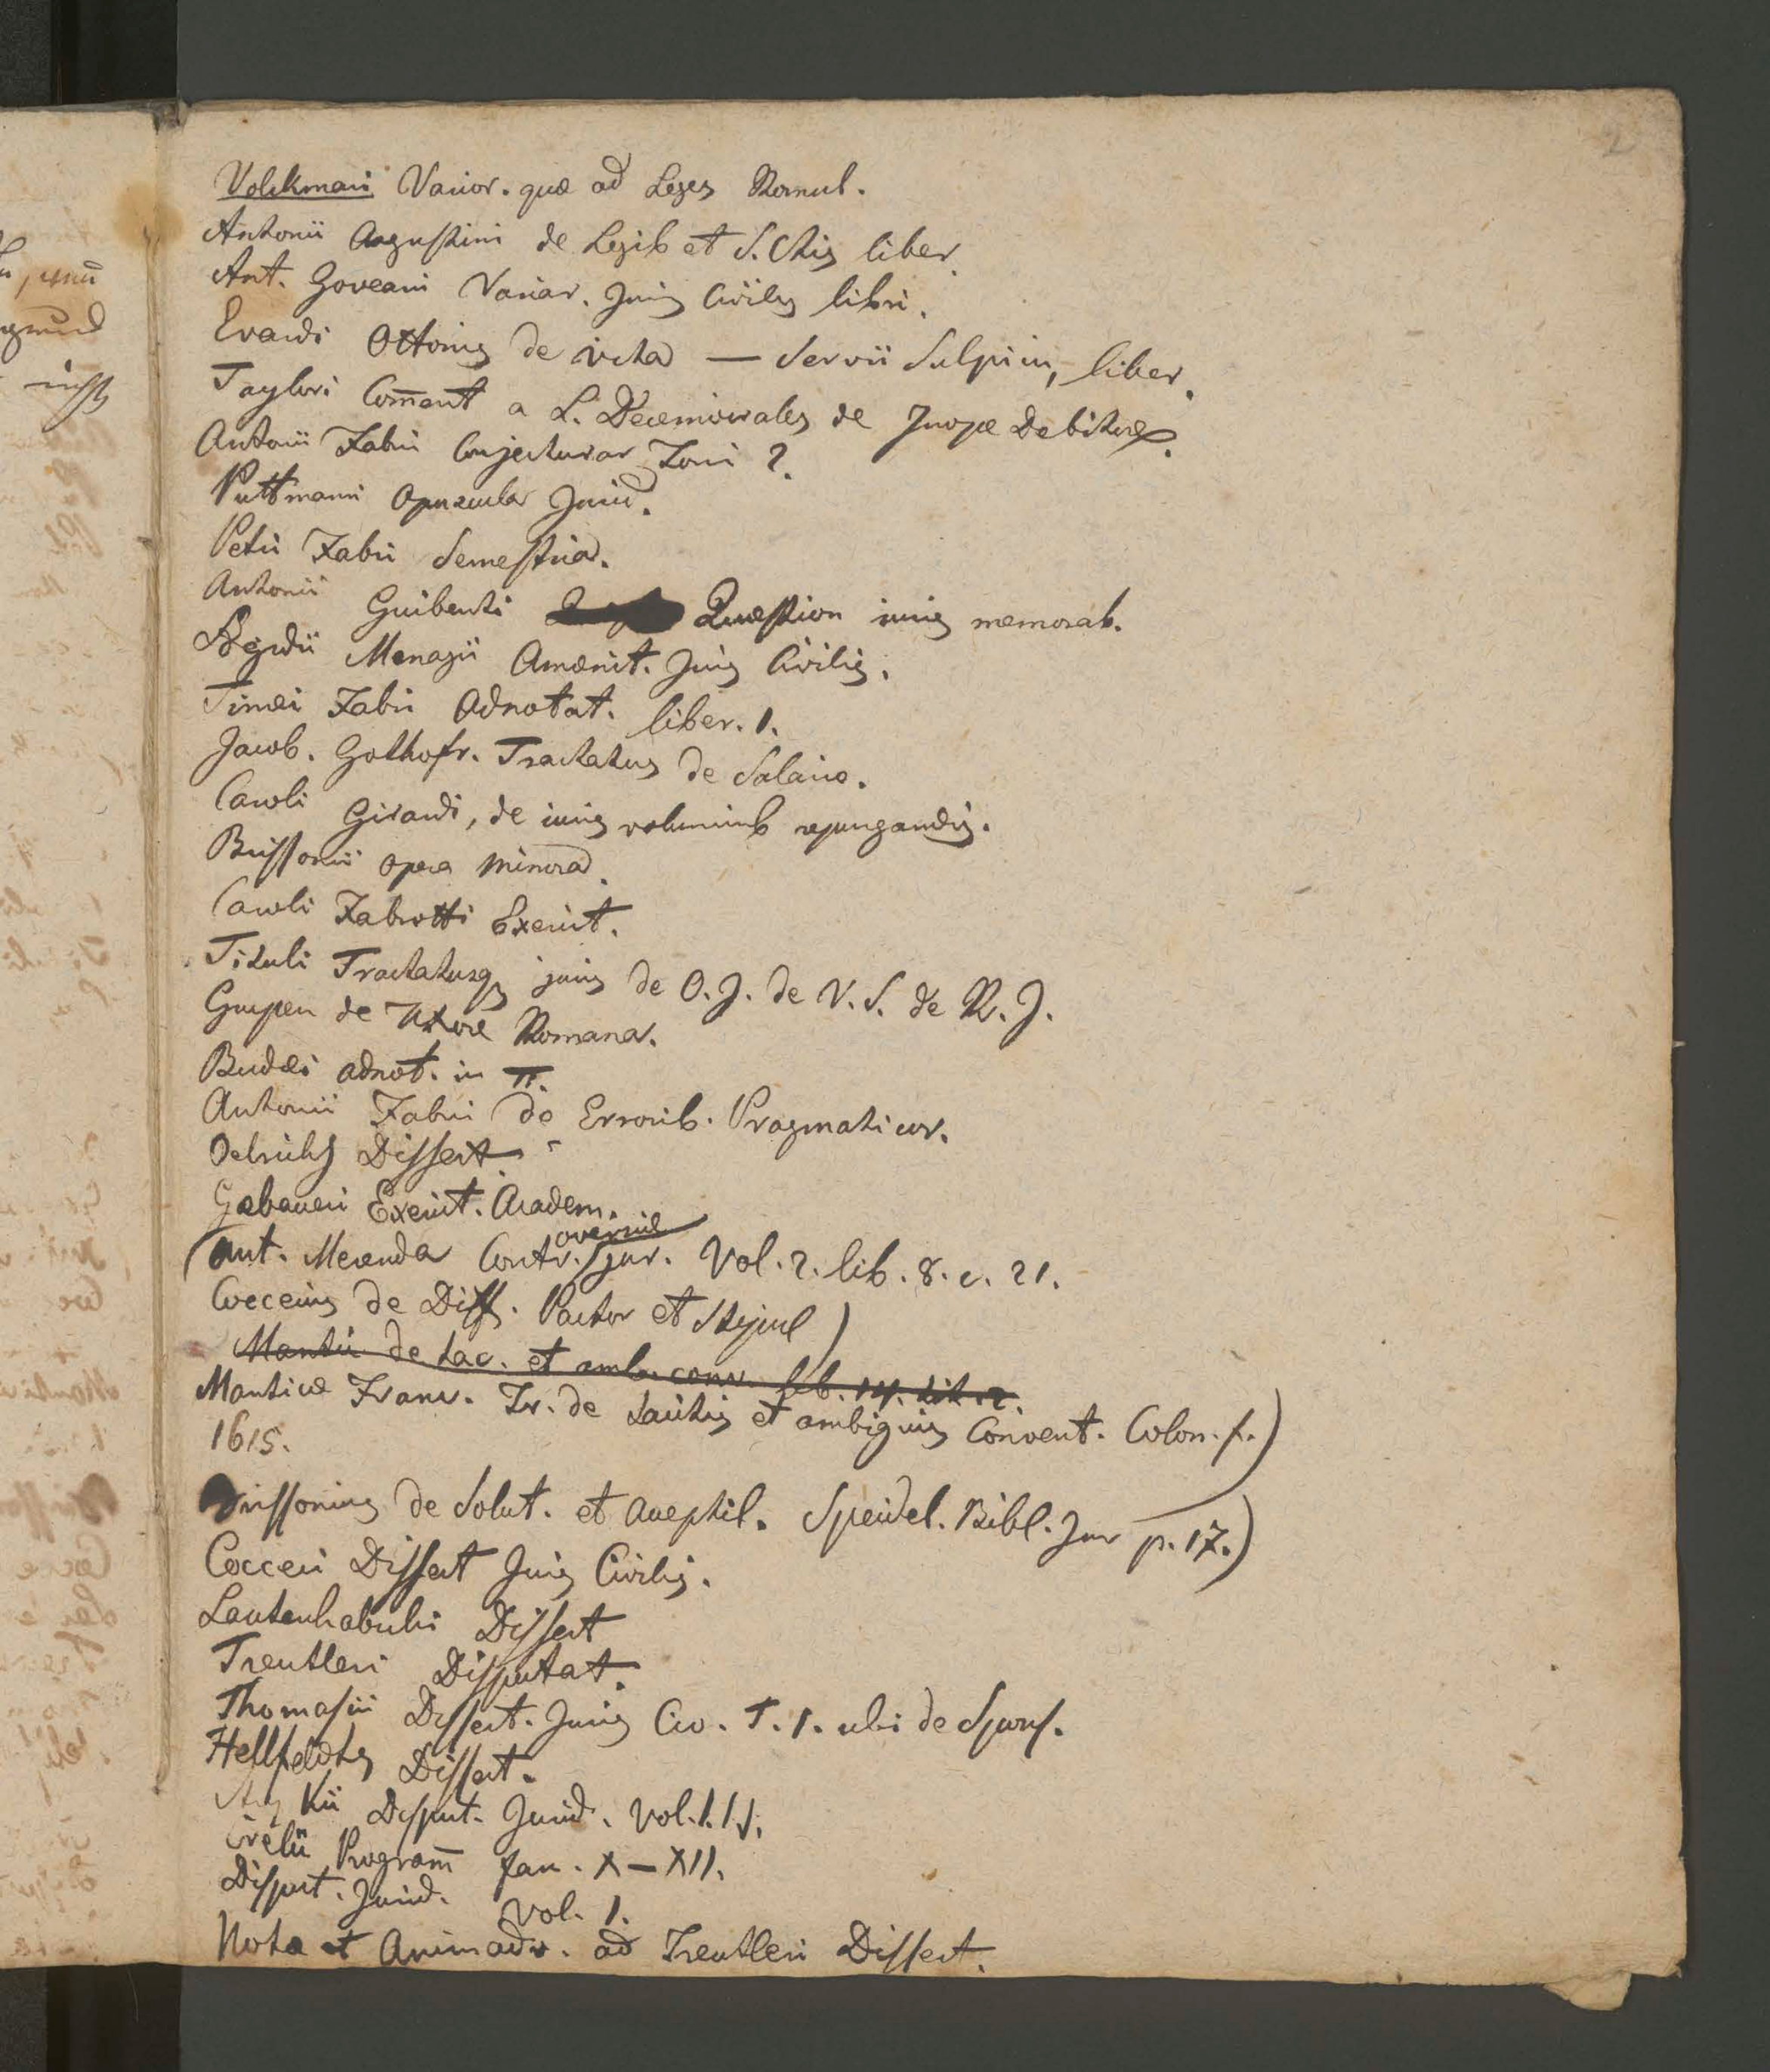 2
Volckmari Varior. quæ ad Leges Romul.
Antonii Augustini de Legib et S. Ctis liber.
Ant. Goveani Variar. Juris Civilis libri.
Evardi Ottonis de vita — Servii Sulpicii, liber.
Taylori Com̄ent a L. Decemvirales de Inope Debitore.
Antonii Fabri Conjecturar Tomi 2.
Puttmanni Opuscula Jurid.
Petri Fabri Semestria.
Antonii Guiberti Quæstion iuris memorab.
Ægidii Menagii Amœnit. Juris Civilis.
Timæi Fabri Adnotat. liber. 1.
Jacob. Gothofr. Tractatus de Salario.
Caroli Girardi, de iuris voluminib repurgandis.
Brissonii opera minora.
Caroli Fabrotti Exercit.
Tituli Tractatusq juris de O. J. de V. S. de R. J.
Grupen de Uxore Romana.
Budæi adnot. in π.
Antonii Fabri de Errorib. Pragmaticor.
Oelrichs Dissert.
Gebaueri Exercit. Academ.
(Ant. Merenda Controversiæ jur. Vol. 2. lib. 8. c. 21.
Cocceius de Diff. Pactor et Stipul)
Mantic de tac. et amb. conv. lib. 14. tit. 2.
Manticæ Franc. Tr. de tacitis et ambiguis Convent. Colon. f.)
1615.
Brissonius de Solut. et Acceptil. Speidel. Bibl. Jur p. 17.)
Cocceii Dissert Juris Civilis.
Lauterbachii Dissert
Treutleri Disputat.
Thomasii Dissert. Juris Civ. T. 1. ubi de Spons.
Hellfeldts Dissert.
Disput. Jurid. Vol.
Program̄ fan. X — XII.
Disput. Jurid. Vol. 1.
Nota et Animadv. ad Treutleri Dissert.